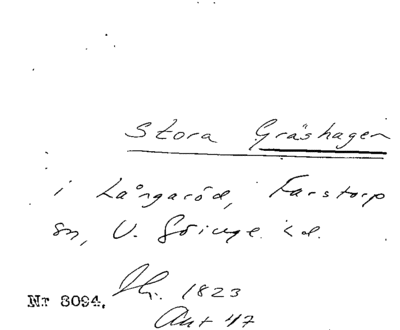 Stora Gräshagen
i Långaröd, Farstorp
sn, V. Göinge hd.
1823
Nr 8094.
Aut 47